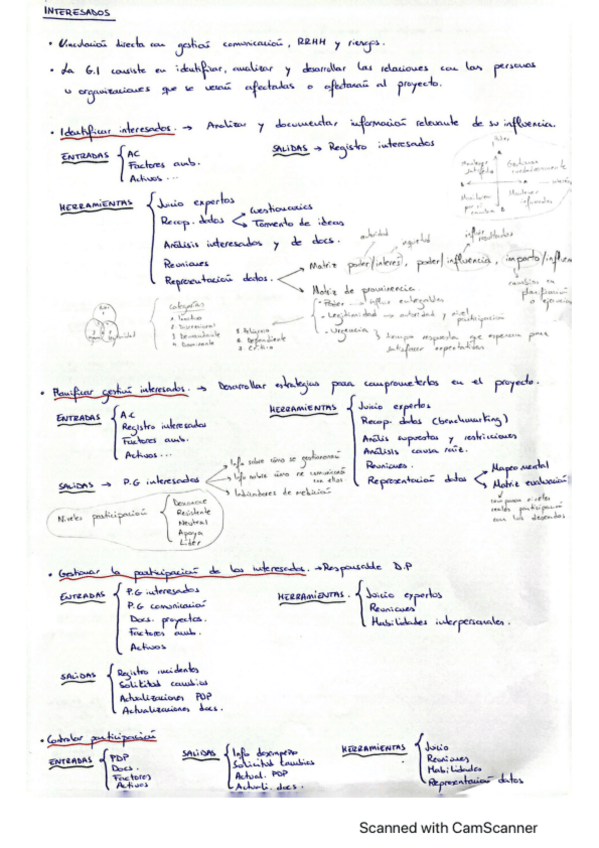 INTERESADOS
• Vinculación directa con gestión comunicación, RRHH y riesgos.
• La G.I consiste en identificar, analizar y desarrollar las relaciones con las personas
u organizaciones que se verán afectadas o afectarán al proyecto.
• Identificar interesados. → Analizar y documentar información relevante de su influencia.
ENTRADAS
AC
Factores amb.
Activos...
SALIDAS → Registro interesados
Poder
Mantener satisfecho
Gestionar
Mantener informados
HERRAMIENTAS
Juicio expertos
Recop. datos
Cuestionarios
Tormenta de ideas
Análisis interesados y de docs.
Reuniones
Representación datos.
autoridad
influir resultados
Matriz poder/interés, poder/influencia, impacto/influen
Matriz de prominencia.
• Poder → influir entregables
• Legitimidad → autoridad y nivel participación
• Urgencia → tiempo respuesta que esperan para
satisfacer expectativas
Categorías
1. Inactivo
2. Discrecional
3. Demandante
4. Dominante
5. Peligroso
6. Dependiente
7. Crítico
• Planificar gestión interesados. → Desarrollar estrategias para comprometerlos en el proyecto.
ENTRADAS
AC
Registro interesados
Factores amb.
Activos...
HERRAMIENTAS
Juicio expertos
Recop. datos (benchmarking)
Anális supuestos y restricciones
Análisis causa raíz.
Reuniones.
Representación datos
Mapeo mental
Matriz evaluación
comparan niveles
reales participación
con los deseados
SALIDAS → P.G interesados
Info sobre cómo se gestionarán
Info sobre cómo se comunicará
con ellos
Indicadores de medición
Niveles participación
Desconoce
Resistente
Neutral
Apoya
Líder
• Gestionar la participación de los interesados. → Responsable D.P
ENTRADAS
P.G interesados
P.G comunicación
Docs. proyectos.
Factores amb.
Activos
HERRAMIENTAS.
Juicio expertos
Reuniones
Habilidades interpersonales.
SALIDAS
Registro incidentes
Solicitud cambios
Actualizaciones PDP
Actualizaciones docs.
• Controlar participación
ENTRADAS
PDP
Docs.
Factores
Activos
SALIDAS
Info desempeño
Solicitud cambios
Actual. PDP
Actuali. docs.
HERRAMIENTAS
Juicio
Reuniones
Habilidades
Representación datos
Scanned with CamScanner